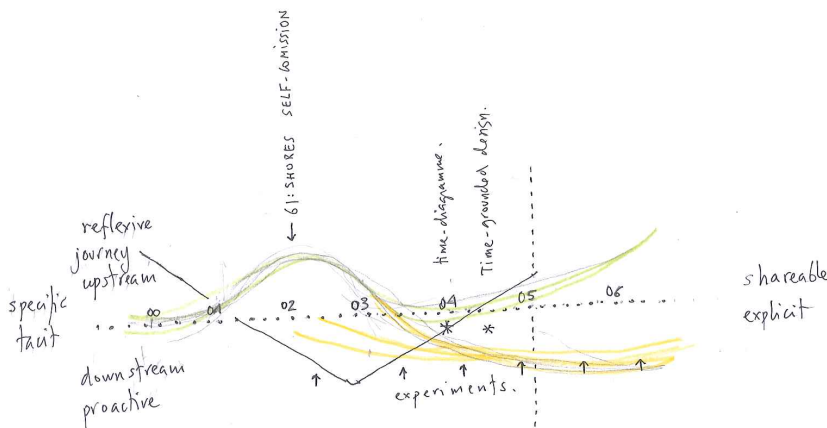 ← 61:SHORES SELF-COMISSION
time-diagramme.
Time-grounded design.
reflexive
journey
upstream
specific
tacit
00
01
02
03
04
05
06
shareable
explicit
downstream
proactive
experiments.